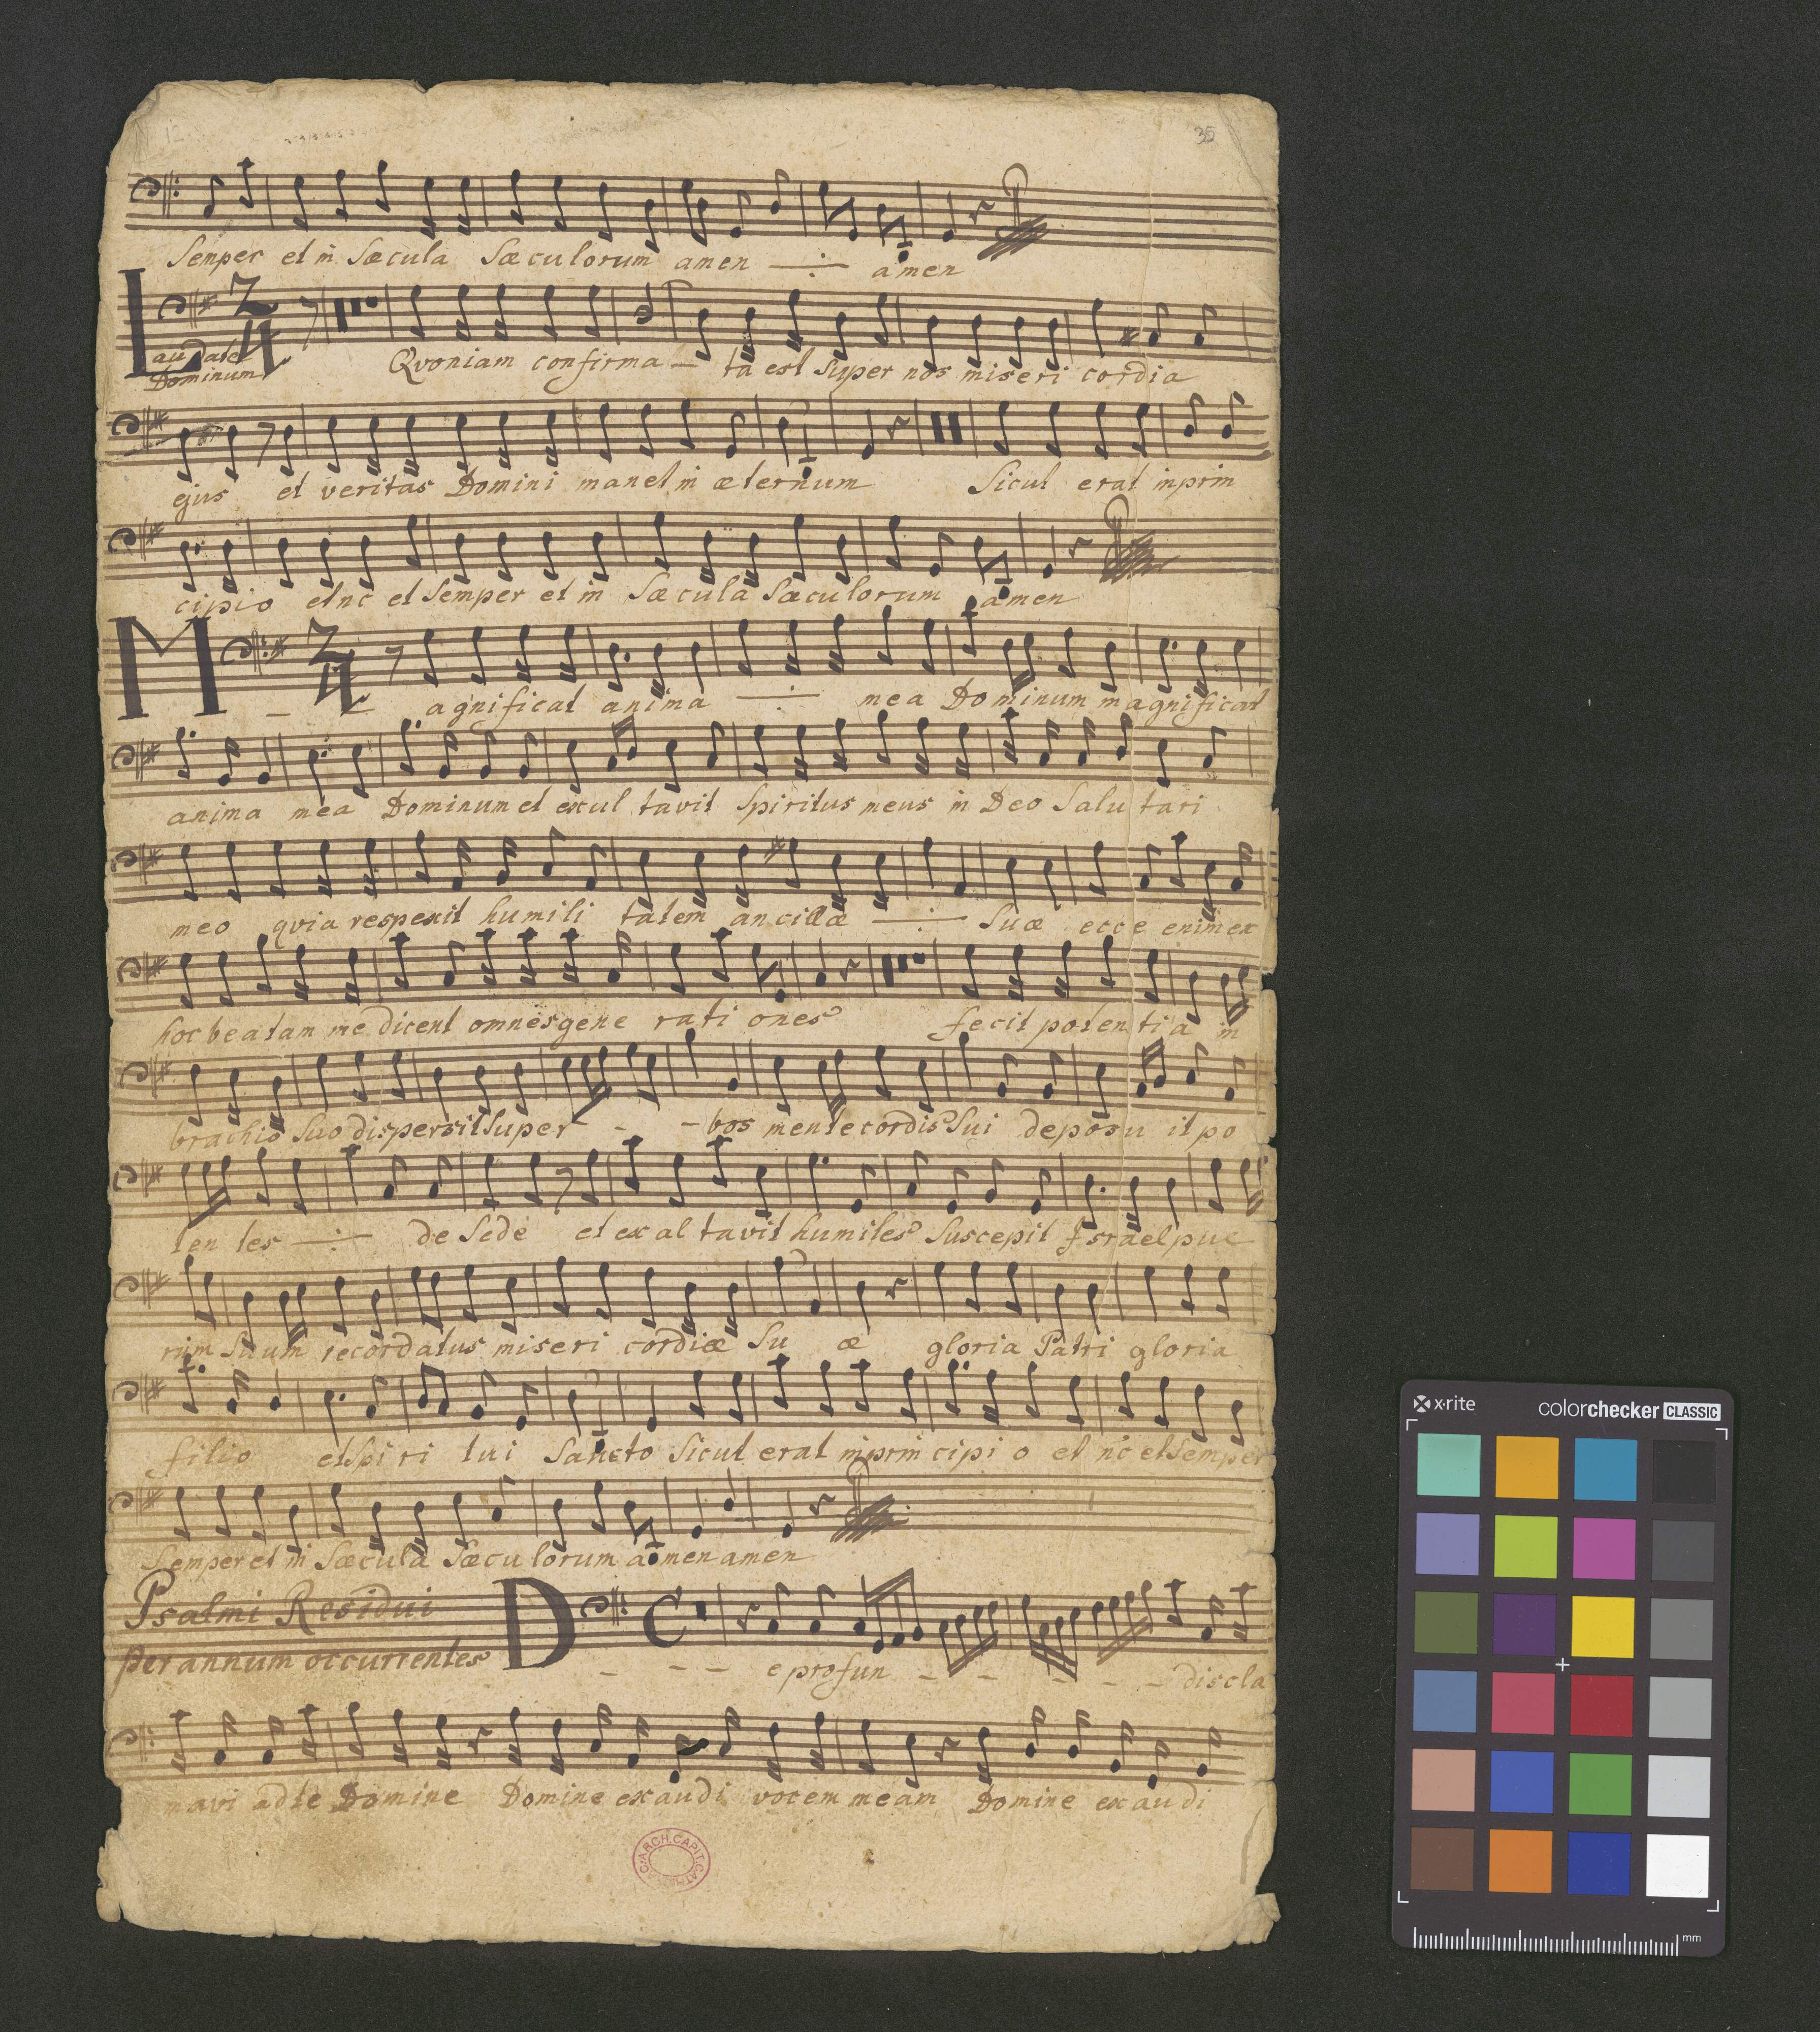 12 35
Semper et in Sæcula Sæculorum amen amen
Laudate Dominum 2/4 Qvoniam confirma - ta est Super nos miseri cordia
ejus et veritas Domini manet in æternum Sicut erat inprin
cipio et nc et Semper et in Sæcula Sæculorum amen
M 2/4 agnificat anima mea Dominum magnificat
anima mea Dominum et exul tavit Spiritus meus in Deo Salu tari
meo qvia respexit humili tatem ancillæ Suæ ecce enim ex
hoc beatam me dicent omnes gene rati ones fecit potentia in
brachio Suo dispersit Super - - bos mente cordis Sui deposu it po
ten tes de Sede et ex al tavit humiles Suscepit Israel pue
rum Suum recordatus miseri cordiæ Su æ gloria Patri gloria
filio et Spi ri tui Sancto Sicut erat inprin cipi o et nc et Semper
Semper et in Sæcula Sæcu lorum amen amen
Psalmi Residui
per annum occurrentes
D C - - - e profun - - - - - discla
mavi ad te Domine Domine exaudi vocem meam Domine exau di
x·rite colorchecker CLASSIC
mm